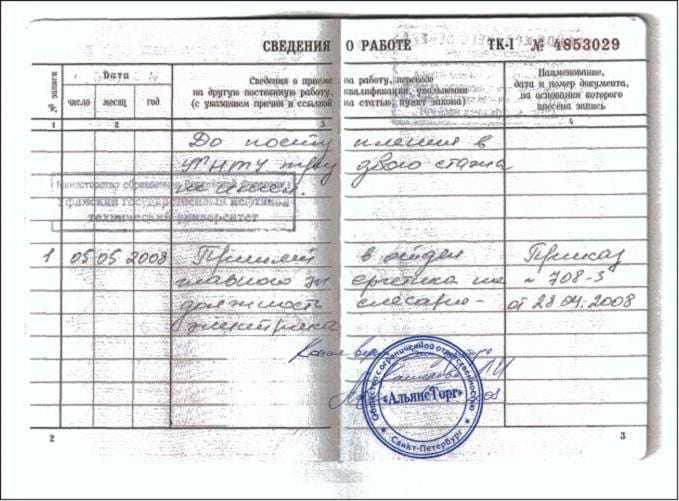 СВЕДЕНИЯ О РАБОТЕ ТК-I № 4853029
№ записи
Дата
число месяц год
Сведения о приеме на работу, переводе
на другую постоянную работу, квалификации, увольнении
(с указанием причин и ссылкой на статью, пункт закона)
Наименование,
дата и номер документа,
на основании которого
внесена запись
1 2 3 4
До поступления в
УГНТУ трудового стажа
не имеет.
Министерство образования
Уфимский государственный нефтяной
технический университет
1 05 05 2008 Принят в отдел Приказ
главного энергетика на № 708-з
должность слесаря- от 28 04.2008
электрика
Копия верна
Общество с ограниченной ответственностью
«АльянсТорг»
Санкт-Петербург
2 3